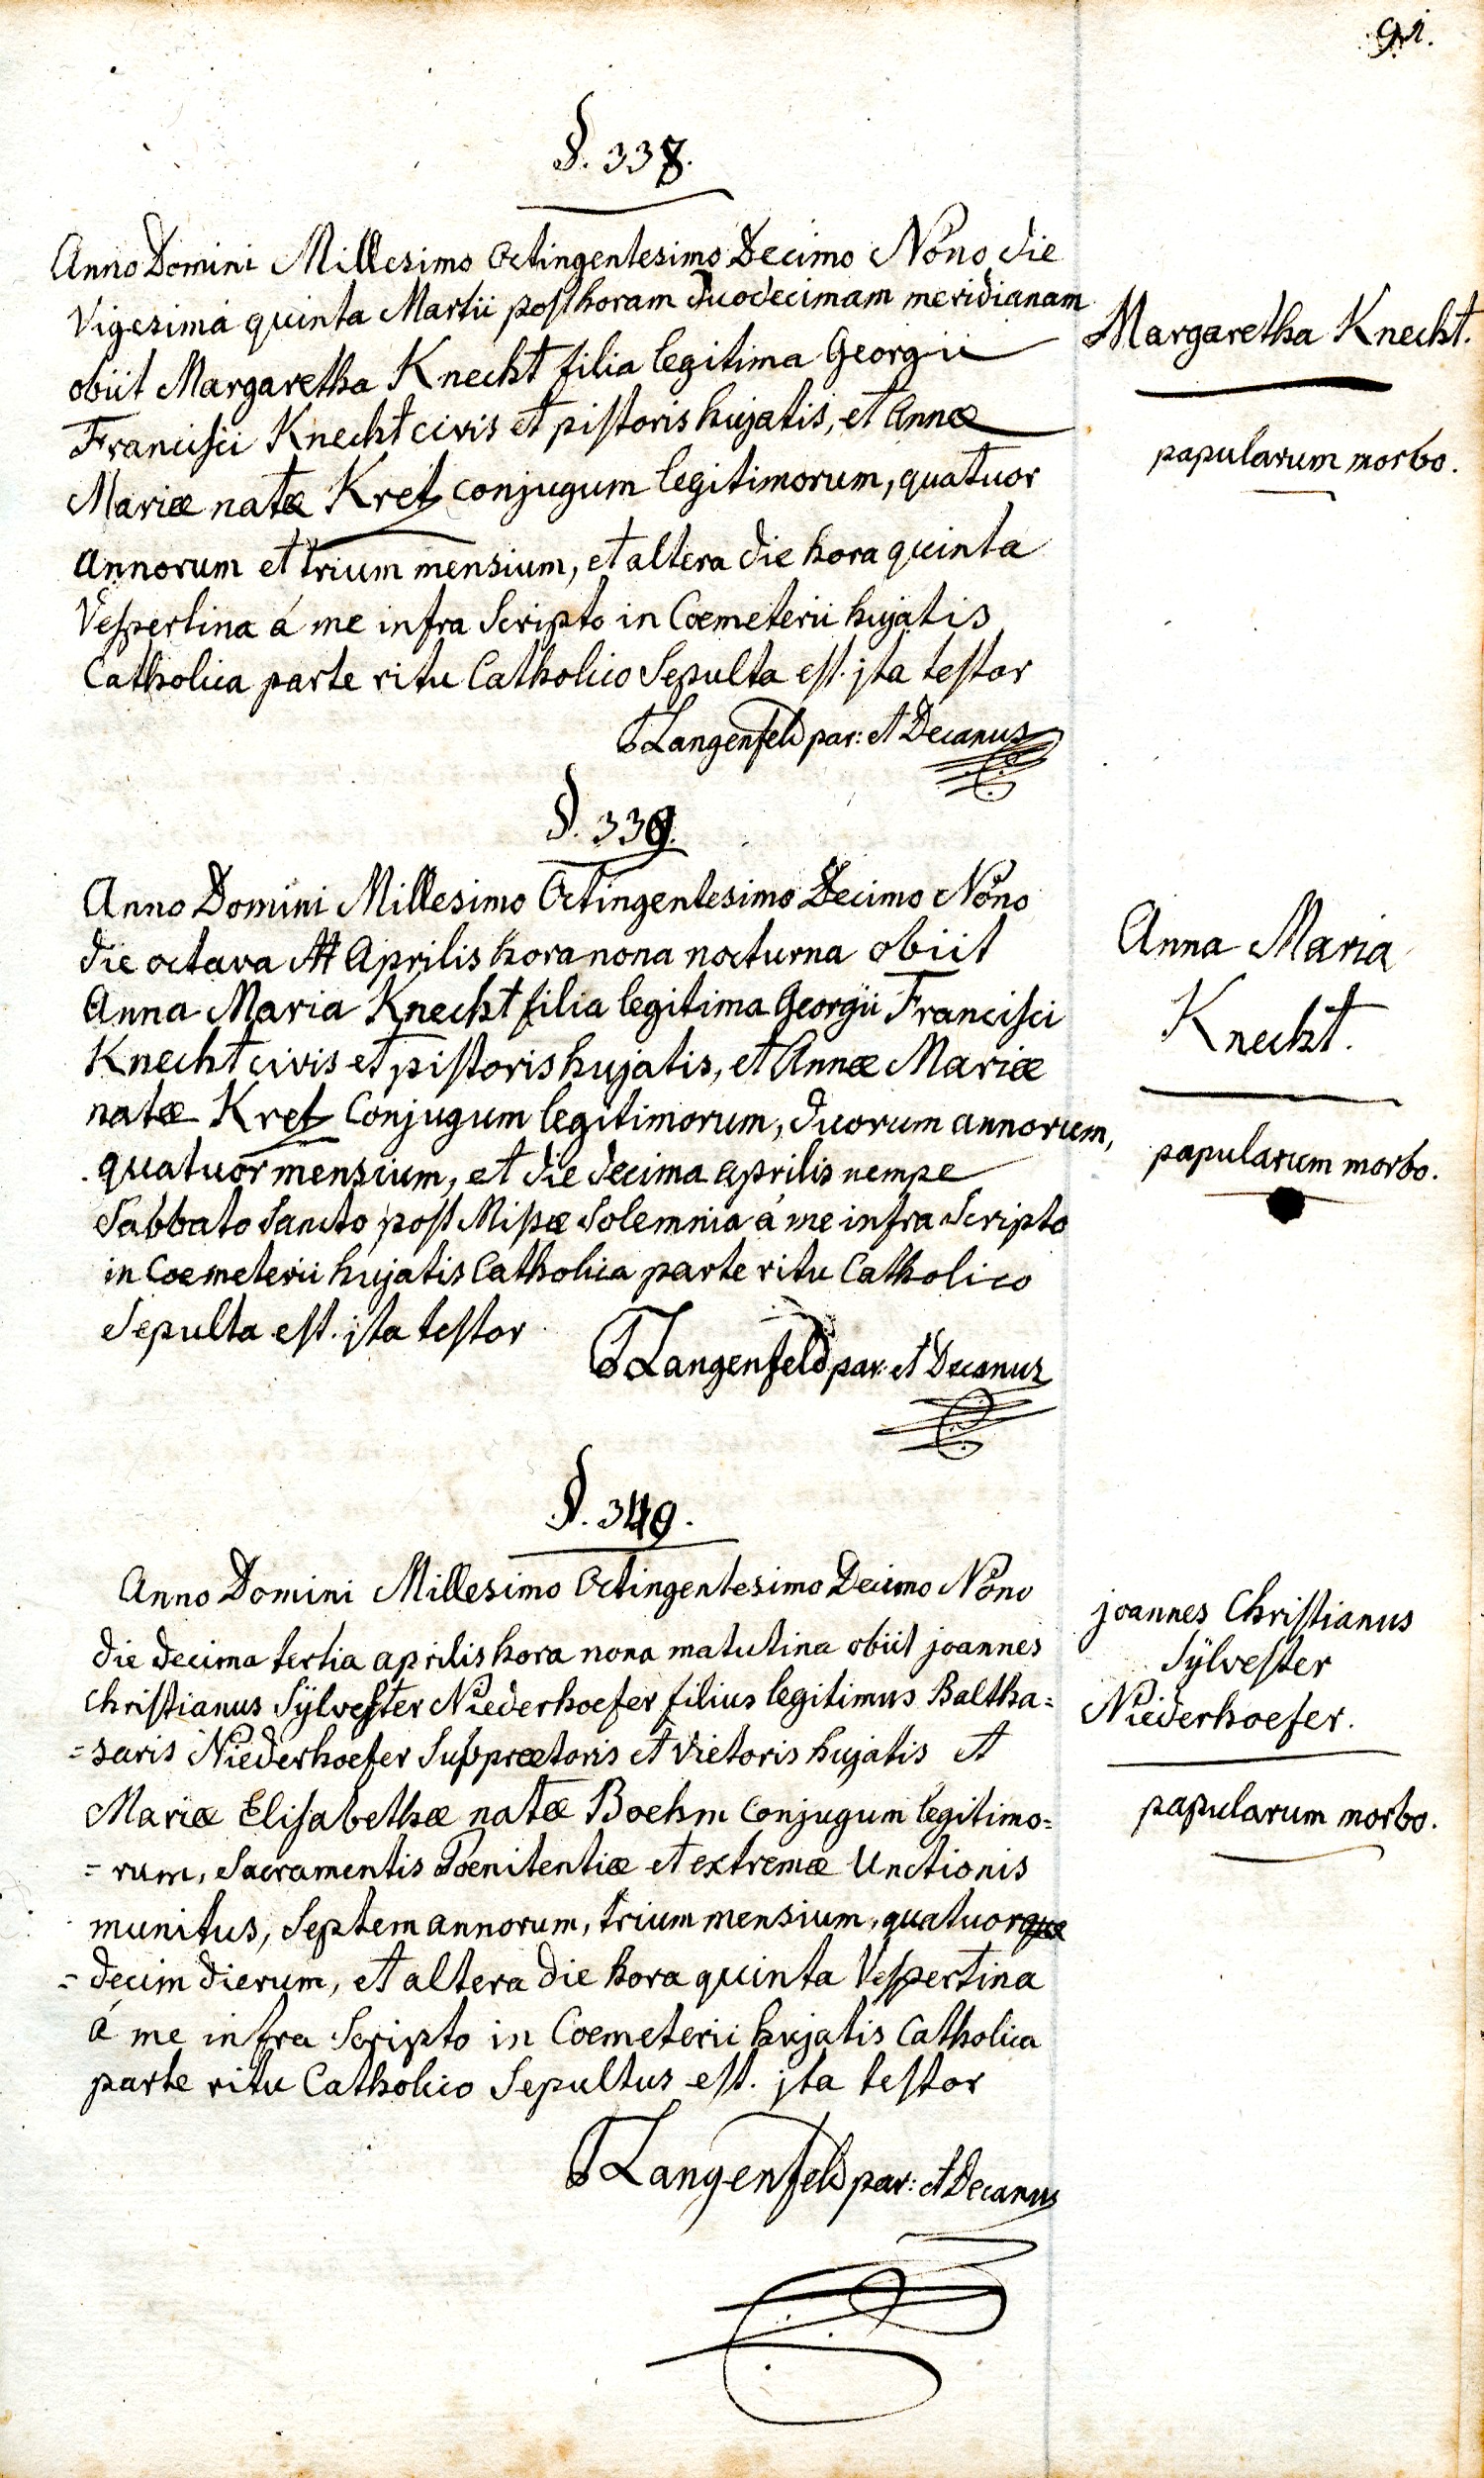 91.
§. 338.
Anno Domini Millesimo Octingentesimo Decimo Nono die
Vigesima quinta Martii post horam duodecimam meridianam
obiit Margaretha Knecht filia legitima Georgii
Francisci Knecht civis et pistoris hujatis, et Annæ
Mariæ natæ Kretz conjugum legitimorum, quatuor
annorum et trium mensium, et altera die hora quinta
Vespertina á me infra Scripto in Coemeterii hujatis
Catholica parte ritu Catholico Sepulta est. jta testor
Langenfeld par: et Decanus
Margaretha Knecht.
papularum morbo.
§. 339.
Anno Domini Millesimo Octingentesimo Decimo Nono
die octava Aprilis hora nona nocturna obiit
Anna Maria Knecht filia legitima Georgii Francisci
Knecht civis et pistoris hujatis, et Annæ Mariæ
natæ Kretz Conjugum legitimorum, duorum annorum,
quatuor mensium, et die decima aprilis nempe
Sabbato Sancto post Missæ Solemnia á me infra Scripto
in Coemeterii hujatis Catholica parte ritu Catholico
Sepulta est. jta testor
Langenfeld par: et Decanus
Anna Maria
Knecht.
papularum morbo.
§. 340.
Anno Domini Millesimo Octingentesimo Decimo Nono
die decima tertia aprilis hora nona matutina obiit joannes
Christianus Sÿlvester Niederhoefer filius legitimus Baltha=
=saris Niederhoefer Suppraetoris et vietoris hujatis et
Mariæ Elisabethæ natæ Boehm conjugum legitimo=
=rum, Sacramentis Poenitentiæ et extremæ Unctionis
munitus, Septem annorum, trium mensium, quatuor
=decim dierum, et altera die hora quinta Vespertina
á me infra Scripto in Coemeterii hujatis Catholica
parte ritu Catholico Sepultus est. jta testor
Langenfeld par: et Decanus
joannes Christianus
Sÿlvester
Niederhoefer.
papularum morbo.